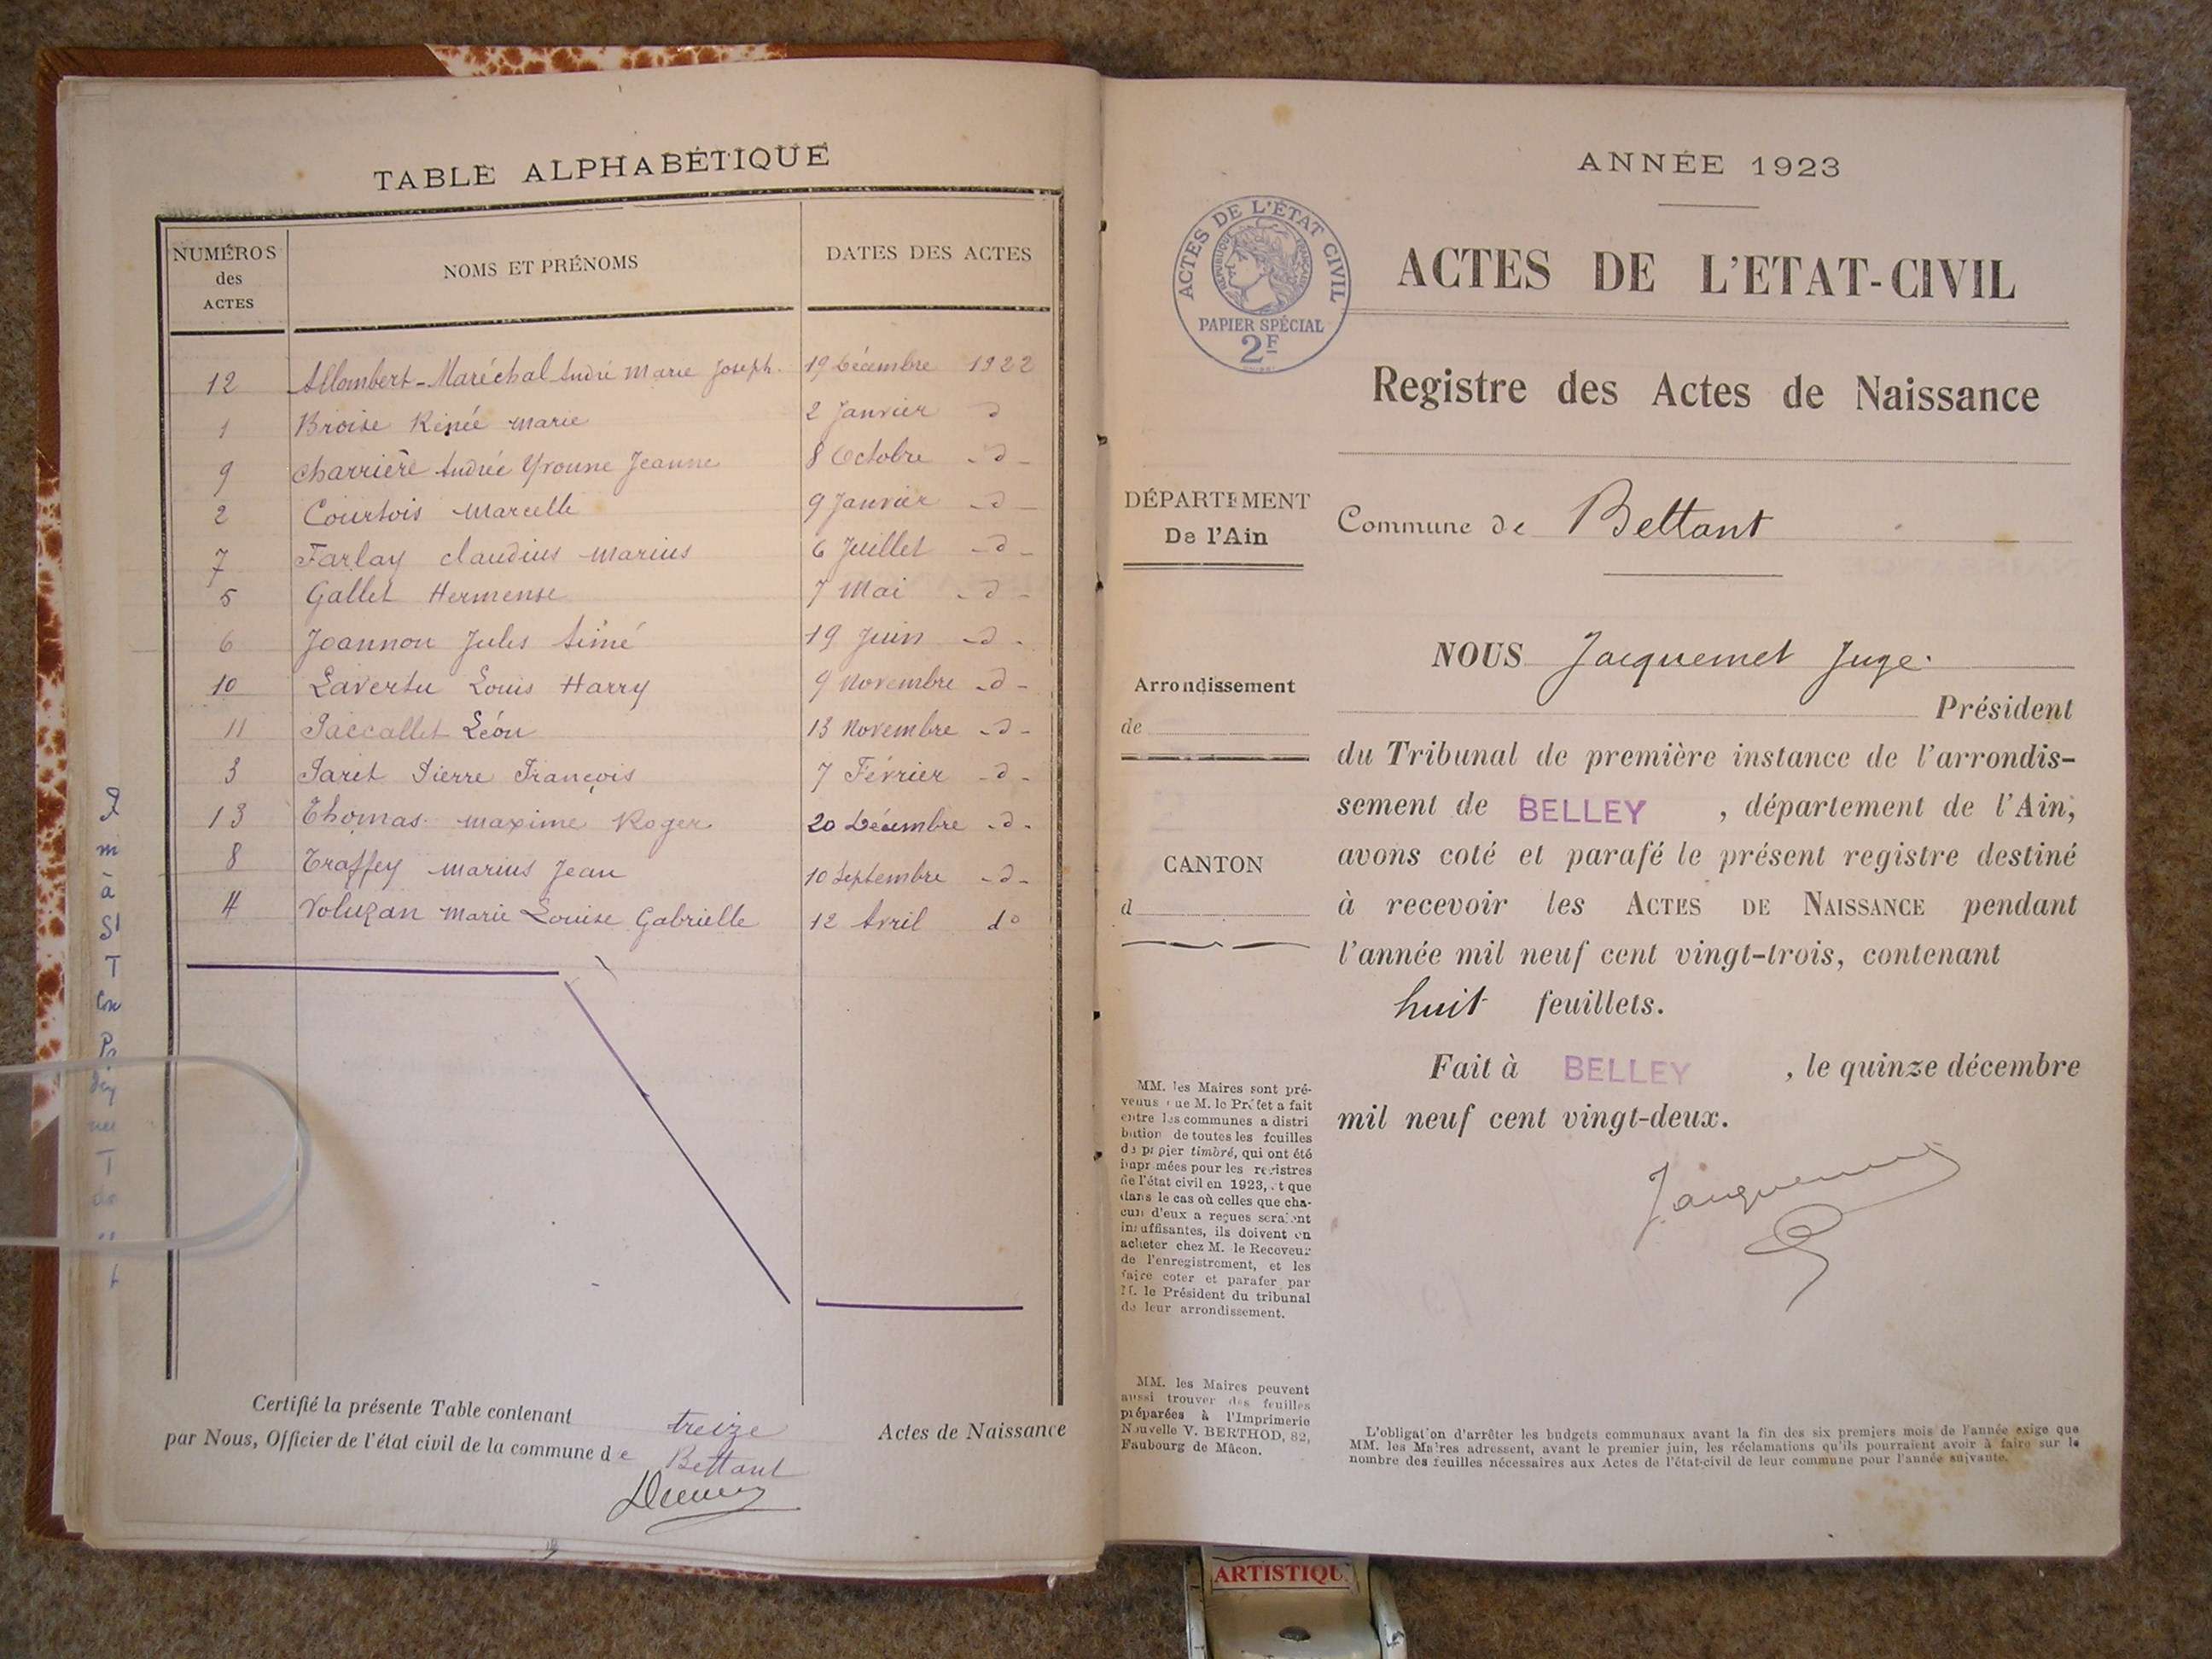 TABLE ALPHABÉTIQUE
NUMÉROS des ACTES
NOMS ET PRÉNOMS
DATES DES ACTES
12 Allombert-Maréchal André Marie Joseph. 19 Décembre 1922
1 Broise Renée Marie 2 Janvier d
9 Charrière Andrée Yvonne Jeanne 8 Octobre -d-
2 Courtois Marcelle 9 Janvier -d-
7 Farlay Claudius Marius 6 Juillet -d-
5 Gallet Hermense 7 Mai -d-
6 Joannon Jules Aimé 19 Juin -d-
10 Lavertu Louis Harry 9 Novembre -d-
11 Paccallet Léon 13 Novembre -d-
3 Paret Pierre François 7 Février -d-
13 Thomas Maxime Roger 20 Décembre -d-
8 Traffey Marius Jean 10 Septembre -d-
4 Voluzan Marie Louise Gabrielle 12 Avril do
Certifié la présente Table contenant treize Actes de Naissance
par Nous, Officier de l'état civil de la commune de Bettant
ANNÉE 1923
ACTES DE L'ÉTAT CIVIL
RÉPUBLIQUE FRANÇAISE
PAPIER SPÉCIAL
2F
ACTES DE L'ETAT-CIVIL
Registre des Actes de Naissance
DÉPARTEMENT
De l'Ain
Commune de Bettant
Arrondissement
de
CANTON
d
NOUS Jacquemet Juge.
Président
du Tribunal de première instance de l'arrondis-
sement de BELLEY, département de l'Ain,
avons coté et parafé le présent registre destiné
à recevoir les ACTES DE NAISSANCE pendant
l'année mil neuf cent vingt-trois, contenant
huit feuillets.
Fait à BELLEY, le quinze décembre
mil neuf cent vingt-deux.
Jacquemet
MM. les Maires sont pré-
venus que M. le Préfet a fait
entre les communes a distri
bution de toutes les feuilles
de papier timbré, qui ont été
imprimées pour les registres
de l'état civil en 1923, et que
dans le cas où celles que cha-
cun d'eux a reçues seraient
insuffisantes, ils doivent en
acheter chez M. le Receveur
de l'enregistrement, et les
faire coter et parafer par
M. le Président du tribunal
de leur arrondissement.
MM. les Maires peuvent
aussi trouver des feuilles
préparées à l'Imprimerie
Nouvelle V. BERTHOD, 82,
Faubourg de Mâcon.
L'obligation d'arrêter les budgets communaux avant la fin des six premiers mois de l'année exige que
MM. les Maires adressent, avant le premier juin, les réclamations qu'ils pourraient avoir à faire sur le
nombre des feuilles nécessaires aux Actes de l'état-civil de leur commune pour l'année suivante.
ARTISTIQU